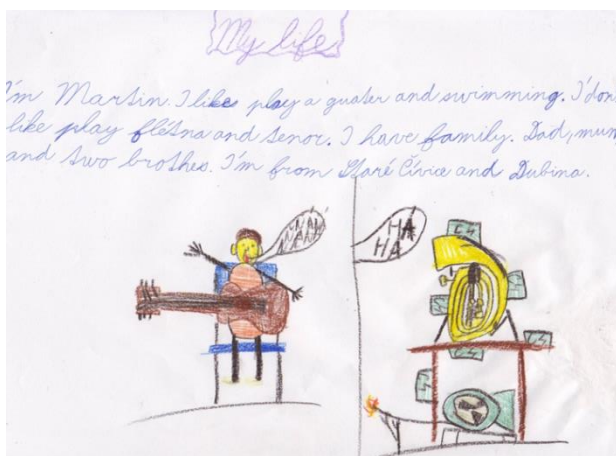 My life
I'm Martin. I like play a guater and swimming. I'don
like play flétna and tenor. I have family. Dad, mum
and two brothes. I'm from Staré Čívice and Dubina.
HA
HA
C4
C4